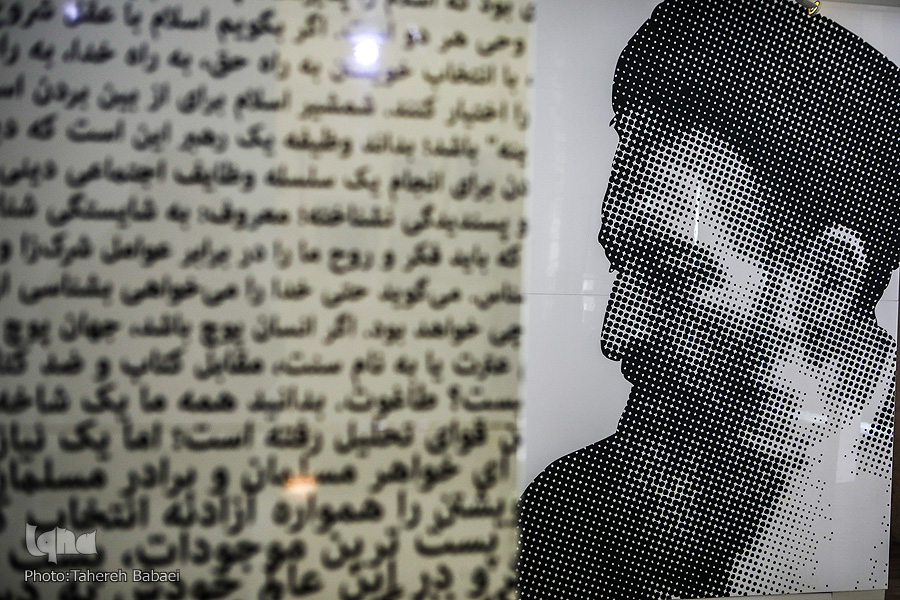 بود که اسلام را
وحی هر دو اگر بگویم اسلام با عقل شروع
با انتخاب خویش به راه حق، به راه خدا، به راه
را اختیار کنند. شمشیر اسلام برای از بین بردن
باشد؛ بداند وظیفه یک رهبر این است که
برای انجام یک سلسله وظایف اجتماعی دینی
و پسندیدگی نشناخته؛ معروف؛ به شایستگی
که باید فکر و روح ما را در برابر عوامل شرک‌زا و
می‌گوید حتی خدا را می‌خواهی بشناسی از
خواهد بود. اگر انسان پوچ باشد، جهان پوچ
عبارت یا به نام سنت، مقابل کتاب و ضد
طاغوت. بدانید همه ما یک شاخه
قوای تحلیل رفته است؛ اما یک
ای خواهر مسلمان و برادر مسلمان
را همواره آزادنه انتخاب
پست ترین موجودات،
و در این عالم خودش به
iqna
Photo:Tahereh Babaei